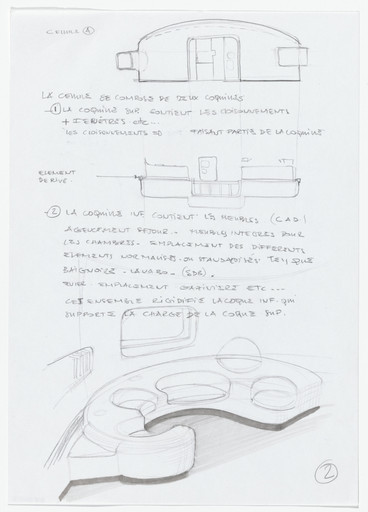 CELLULE (A)
LA CELLULE SE COMPOSE DE DEUX COQUILLES
① LA COQUILLE SUP CONTIENT LES CLOISONNEMENTS
+ FENÊTRES etc...
LES CLOISONNEMENTS SE FAISANT PARTIE DE LA COQUILLE
ELEMENT
DE RIVE.
② LA COQUILLE INF CONTIENT LES MEUBLES (C A D)
AGENCEMENT SEJOUR - MEUBLES INTEGRES POUR
LES CHAMBRES - EMPLACEMENT DES DIFFERENTS
ELEMENTS NORMALISÉS OU STANDARDISÉS TEL QUE
BAIGNOIRE - LAVABO - (SDB).
EVIER EMPLACEMENT CUISINIERE ETC...
CET ENSEMBLE RIGIDIFIE LA COQUE INF. QUI
SUPPORTE LA CHARGE DE LA COQUE SUP.
②